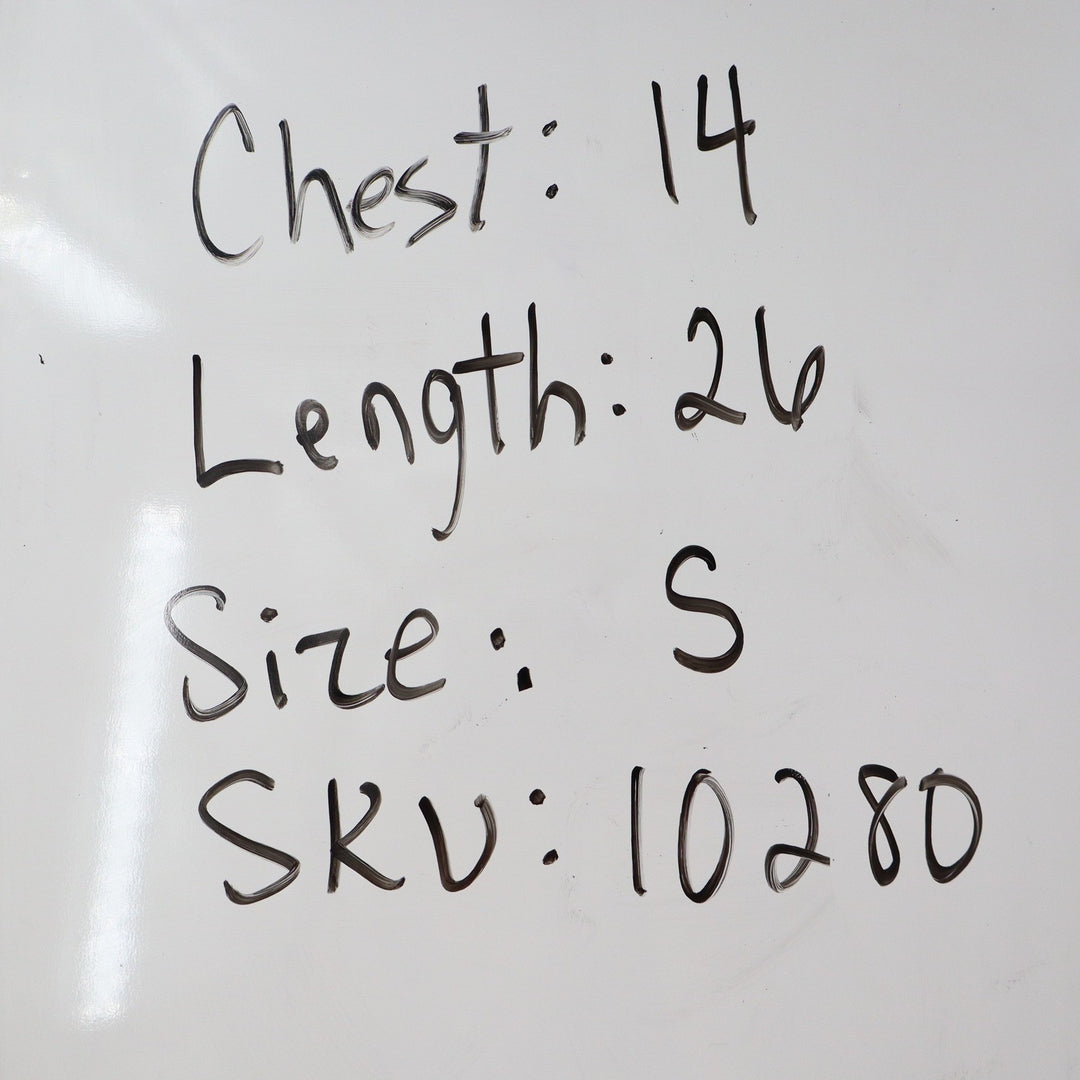 Chest: 14
Length: 26
Size: S
SKU: 10280